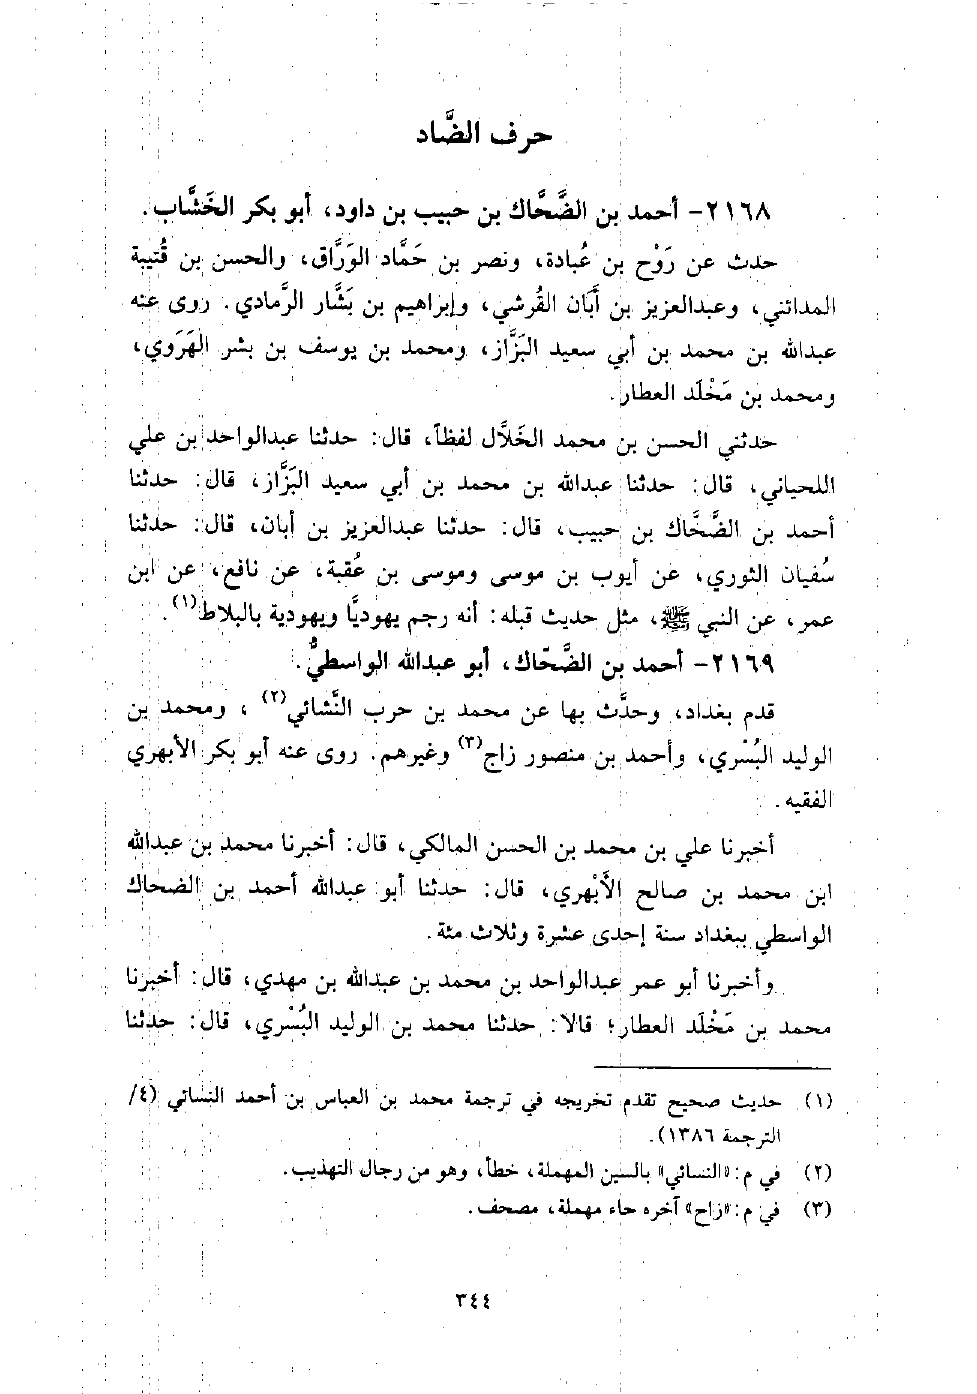 حرف الضَّاد
٢١٦٨- أحمد بن الضَّحَّاك بن حبيب بن داود، أبو بكر الخَشَّاب.
حدث عن رَوْح بن عُبادة، ونصر بن حَمَّاد الوَرَّاق، والحسن بن قُتيبة
المدائني، وعبدالعزيز بن أَبَان القُرشي، وإبراهيم بن بَشَّار الرَّمادي. روى عنه
عبدالله بن محمد بن أبي سعيد البَزَّاز، ومحمد بن يوسف بن بشر الهَرَوي،
ومحمد بن مَخْلَد العطار.
حدثني الحسن بن محمد الخَلَّال لفظاً، قال: حدثنا عبدالواحد بن علي
اللحياني، قال: حدثنا عبدالله بن محمد بن أبي سعيد البَزَّاز، قال: حدثنا
أحمد بن الضَّحَّاك بن حبيب، قال: حدثنا عبدالعزيز بن أبان، قال: حدثنا
سُفيان الثوري، عن أيوب بن موسى وموسى بن عُقبة، عن نافع، عن ابن
عمر، عن النبي ﷺ، مثل حديث قبله: أنه رجم يهوديًّا ويهودية بالبلاط(١).
٢١٦٩- أحمد بن الضَّحَّاك، أبو عبدالله الواسطيُّ.
قدم بغداد، وحدَّث بها عن محمد بن حرب النَّشائي(٢)، ومحمد بن
الوليد البُسْري، وأحمد بن منصور زاج(٣) وغيرهم. روى عنه أبو بكر الأبهري
الفقيه.
أخبرنا علي بن محمد بن الحسن المالكي، قال: أخبرنا محمد بن عبدالله
ابن محمد بن صالح الأَبْهري، قال: حدثنا أبو عبدالله أحمد بن الضحاك
الواسطي ببغداد سنة إحدى عشرة وثلاث مئة.
وأخبرنا أبو عمر عبدالواحد بن محمد بن عبدالله بن مهدي، قال: أخبرنا
محمد بن مَخْلَد العطار؛ قالا: حدثنا محمد بن الوليد البُسْري، قال: حدثنا
(١) حديث صحيح تقدم تخريجه في ترجمة محمد بن العباس بن أحمد النسائي (٤/
الترجمة ١٣٨٦).
(٢) في م: «النسائي» بالسين المهملة، خطأ، وهو من رجال التهذيب.
(٣) في م: «زاح» آخره حاء مهملة، مصحف.
٣٤٤